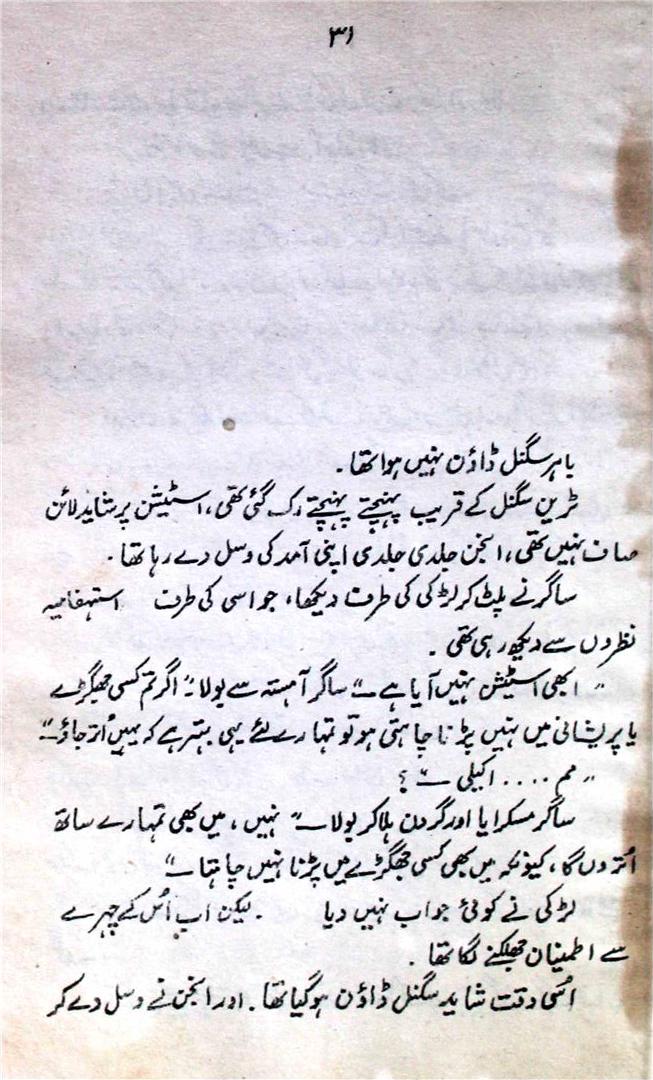 ۳۱
باہر سگنل ڈاؤن نہیں ہوا تھا۔
ٹرین سگنل کے قریب پہنچتے پہنچتے رک گئی تھی، اسٹیشن پر شاید لائن
صاف نہیں تھی، انجن جلدی جلدی اپنی آمد کی وسل دے رہا تھا۔
ساگر نے پلٹ کر لڑکی کی طرف دیکھا، جو اسی کی طرف استہفامیہ
نظروں سے دیکھ رہی تھی۔
"ابھی اسٹیشن نہیں آیا ہے۔" ساگر آہستہ سے بولا۔ "اگر تم کسی جھگڑے
یا پریشانی میں نہیں پڑنا چاہتی ہو تو تمہارے لئے یہی بہتر ہے کہ یہیں اُتر جاؤ۔"
"مم.... اکیلی۔"؟
ساگر مسکرایا اور گردن ہلا کر بولا۔ "نہیں، میں بھی تمہارے ساتھ
اُتروں گا، کیونکہ میں بھی کسی جھگڑے میں پڑنا نہیں چاہتا۔"
لڑکی نے کوئی جواب نہیں دیا۔ لیکن اب اُس کے چہرے
سے اطمینان جھلکنے لگا تھا۔
اسُی وقت شاید سگنل ڈاؤن ہو گیا تھا۔ اور انجن نے وسل دے کر